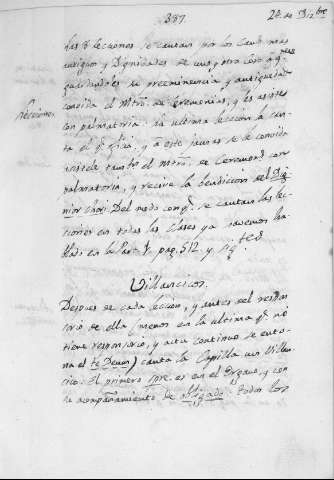 387
24 de Diz.bre
Lecciones.
las 8 lecciones se cantan por los Cavs. mas
antiguos y Dignidades de un y otro coro a q.nes
guardandoles su preeminencia y antiguedad
convida el Mtro. de Ceremonias, y les asiste
con palmatoria. La ultima lección la can-
ta el y a este jamas se le convida
asistele tambn. el Mtro. de Cerems. con
palmatoria, y recive la bendicion del Di-
nior chori. Del modo con q.e se cantan las lec-
ciones en todas las Clases ya tenemos ha-
blado en la Part. 1. pag. 512 y sig.tes
Villancicos.
Despues de cada leccion, y antes del respon-
sorio de ella (menos en la ultima q.e no
tiene responsorio, y acto continuo se ento-
na el Te Deum) canta la Capilla un Villan-
cico. El primero spre. es en el Organo, y con
su acompañamiento de obligado. todos los